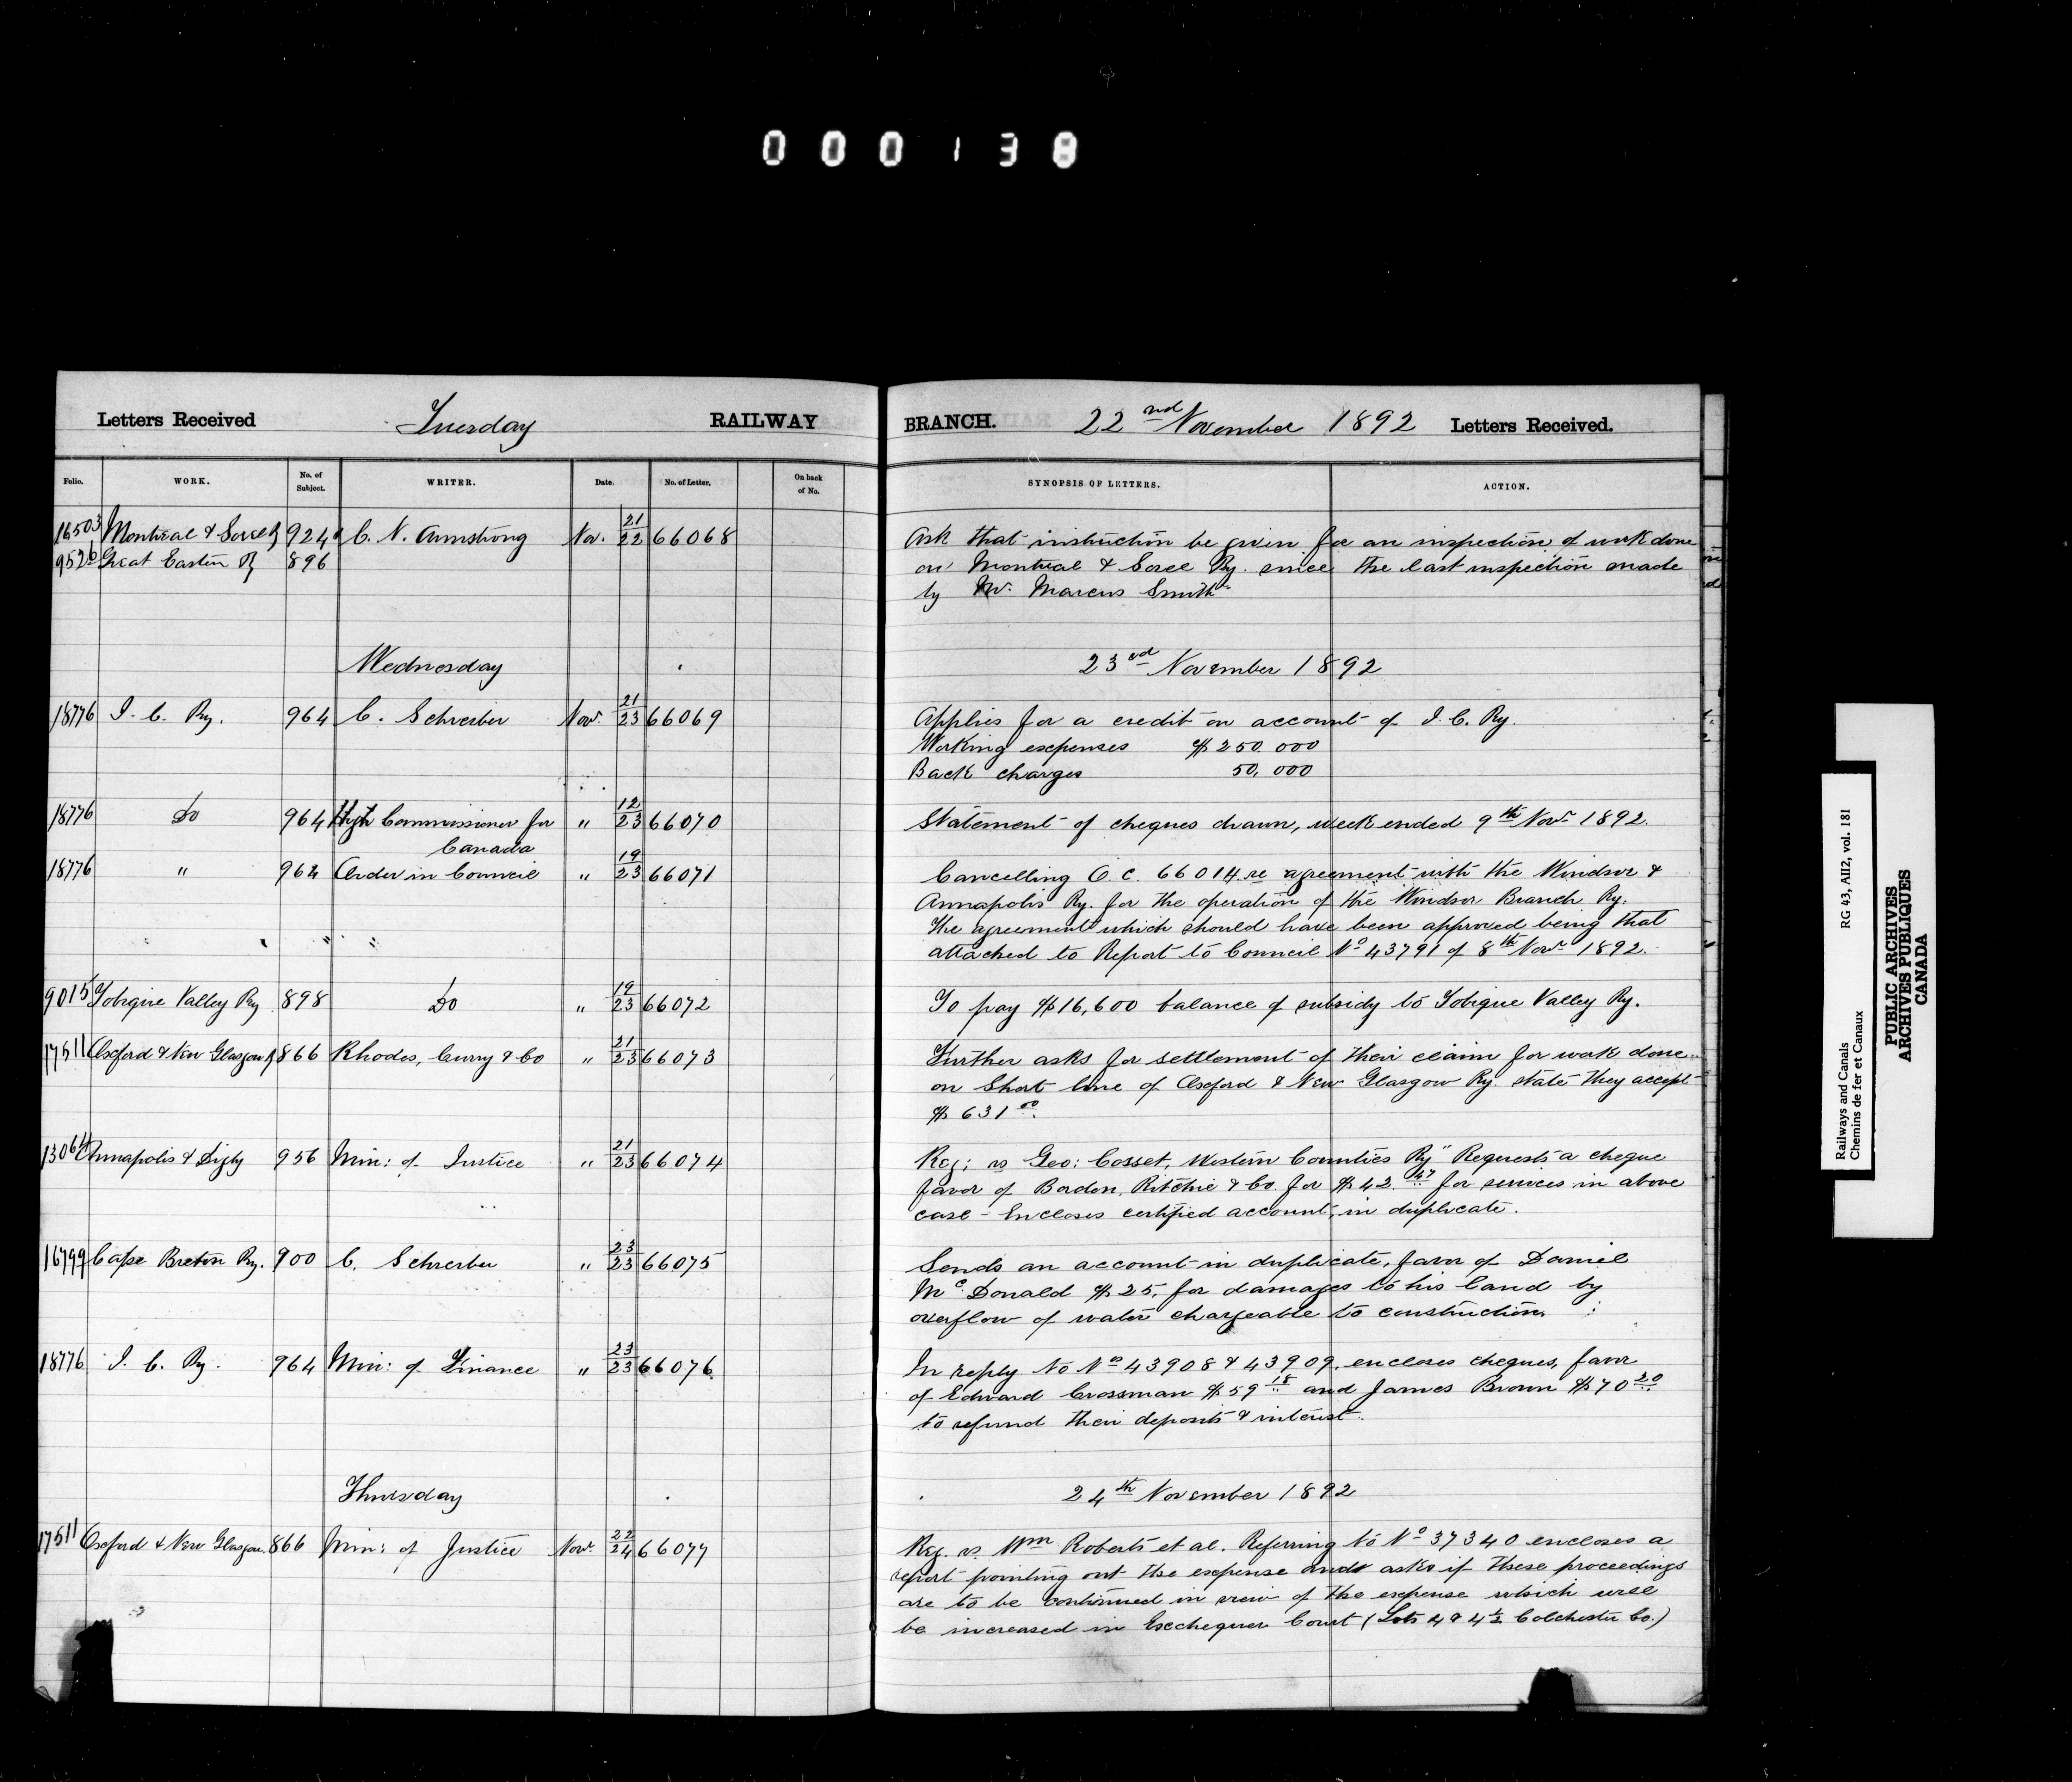 000138
Letters Received Tuesday RAILWAY BRANCH. 22nd November 1892 Letters Received.
Folio. WORK. No. of Subject. WRITER. Date. No. of Letter. On back of No. SYNOPSIS OF LETTERS. ACTION.
16503 Montreal & Sorel Ry 924 C. N. Armstrong Nov. 21/22 66068 Ask that instruction be given for an inspection of work done
9526 Great Eastern Ry 896 on Montreal & Sorel Ry. since the last inspection made
by Mr. Marcus Smith
Wednesday 23rd November 1892
18776 I. C. Ry. 964 C. Schreiber Nov. 21/23 66069 Applies for a credit on account of I. C. Ry.
Working expenses $250.000
Back charges 50,000
18776 Do 964 High Commissioner for Canada " 12/23 66070 Statement of cheques drawn, week ended 9th Nov. 1892.
18776 " 964 Order in Council " 19/23 66071 Cancelling O. C. 66014 re agreement with the Windsor &
Annapolis Ry. for the operation of the Windsor Branch Ry.
The agreement which should have been approved being that
attached to Report to Council No 43791 of 8th Nov. 1892.
9015 Tobique Valley Ry 898 Do " 19/23 66072 To pay $16,600 balance of subsidy to Tobique Valley Ry.
17511 Oxford & New Glasgow Ry 866 Rhodes, Curry & Co " 21/23 66073 Further asks for settlement of their claim for work done
on Short line of Oxford & New Glasgow Ry. state they accept
$631 00.
13064 Annapolis & Digby 956 Min: of Justice " 21/23 66074 Reg: vs Geo: Cosset, Western Counties Ry" Requests a cheque
favor of Borden, Ritchie & Co. for $42.47 for services in above
case - Encloses certified account, in duplicate.
16799 Cape Breton Ry. 900 C. Schreiber " 23/23 66075 Sends an account in duplicate, favor of Daniel
Mc Donald $25, for damages to his land by
overflow of water chargeable to construction.
18776 I. C. Ry. 964 Min: of Finance " 23/23 66076 In reply to Nos 43908 & 43909, encloses cheques, favor
of Edward Crossman $59 18 and James Brown $70 20
to refund their deposits & interest.
Thursday 24th November 1892
17511 Oxford & New Glasgow 866 Min: of Justice Nov. 22/24 66077 Reg. vs. Wm Roberts et al. Referring to No 37340 encloses a
report pointing out the expense and asks if these proceedings
are to be continued in view of the expense which will
be increased in Exchequer Court (Lots 4 & 4½ Colchester Co.)
Railways and Canals RG 43, AII2, vol. 181
Chemins de fer et Canaux
PUBLIC ARCHIVES
ARCHIVES PUBLIQUES
CANADA